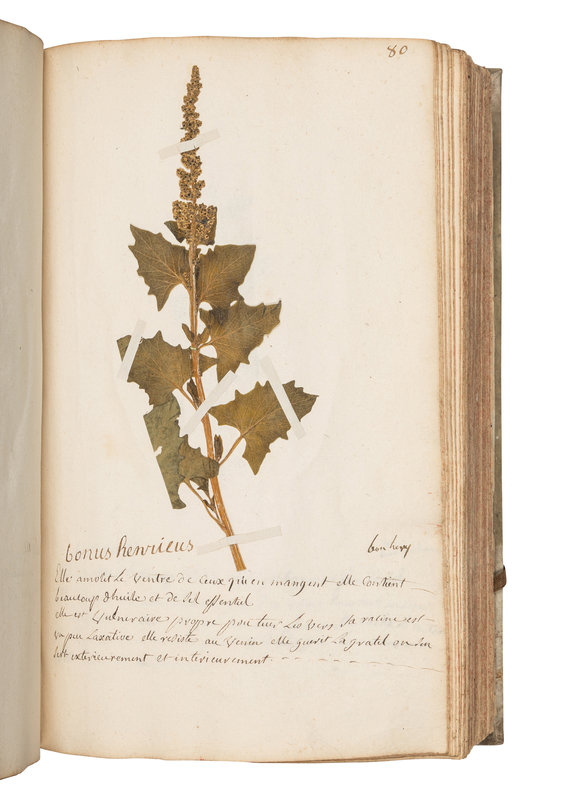 80
bonus henricus
bon hery
Elle amolit le Ventre de Ceux qui en mangent elle Contient
beaucoup d'huile et de Sel essentiel
elle est Vulneraire propre pour tuer Les Vers Sa racine est
un peu Laxative elle resiste au Venin elle guerit La gratel on sen
sert exterieurement et interieurement